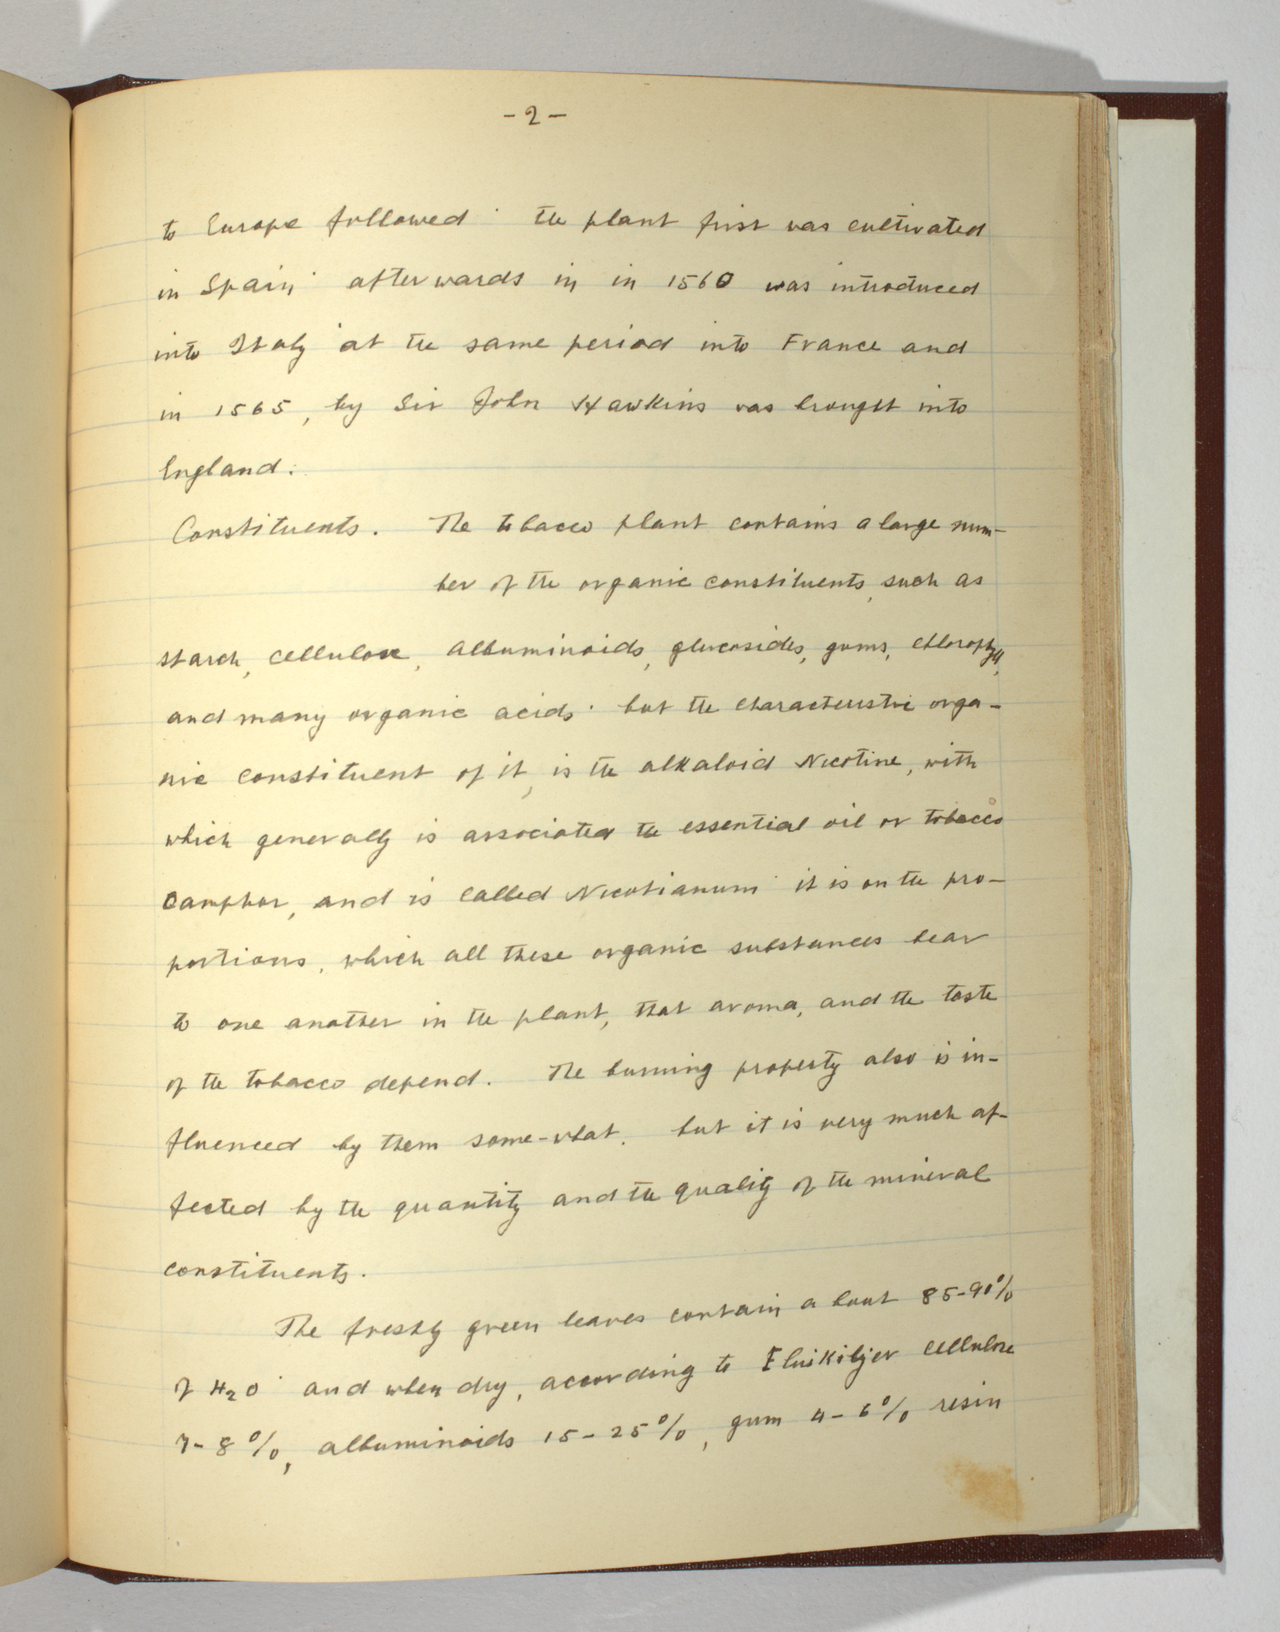 -2-
to Europe followed · the plant first was cultivated
in Spain · afterwards in in 1560 was introduced
into Italy · at the same period into France and
in 1565, by Sir John Hawkins was brought into
England.
Constituents. The tobacco plant contains a large num-
ber of the organic constituents, such as
starch, cellulose, albuminoids, glucosides, gums, chlorophyll,
and many organic acids · but the characteristic orga-
nic constituent of it, is the alkaloid Nicotine, with
which generally is associated the essential oil or tobacco
camphor, and is called Nicotianum · it is on the pro-
portions, which all these organic substances bear
to one another in the plant, that aroma, and the taste
of the tobacco depend. The burning property also is in-
fluenced by them some-what. but it is very much af-
fected by the quantity and the quality of the mineral
constituents.
The freshly green leaves contain about 85-90%
of H2O · and when dry, according to cellulose
7-8%, albuminoids 15-25%, gum 4-6% resin